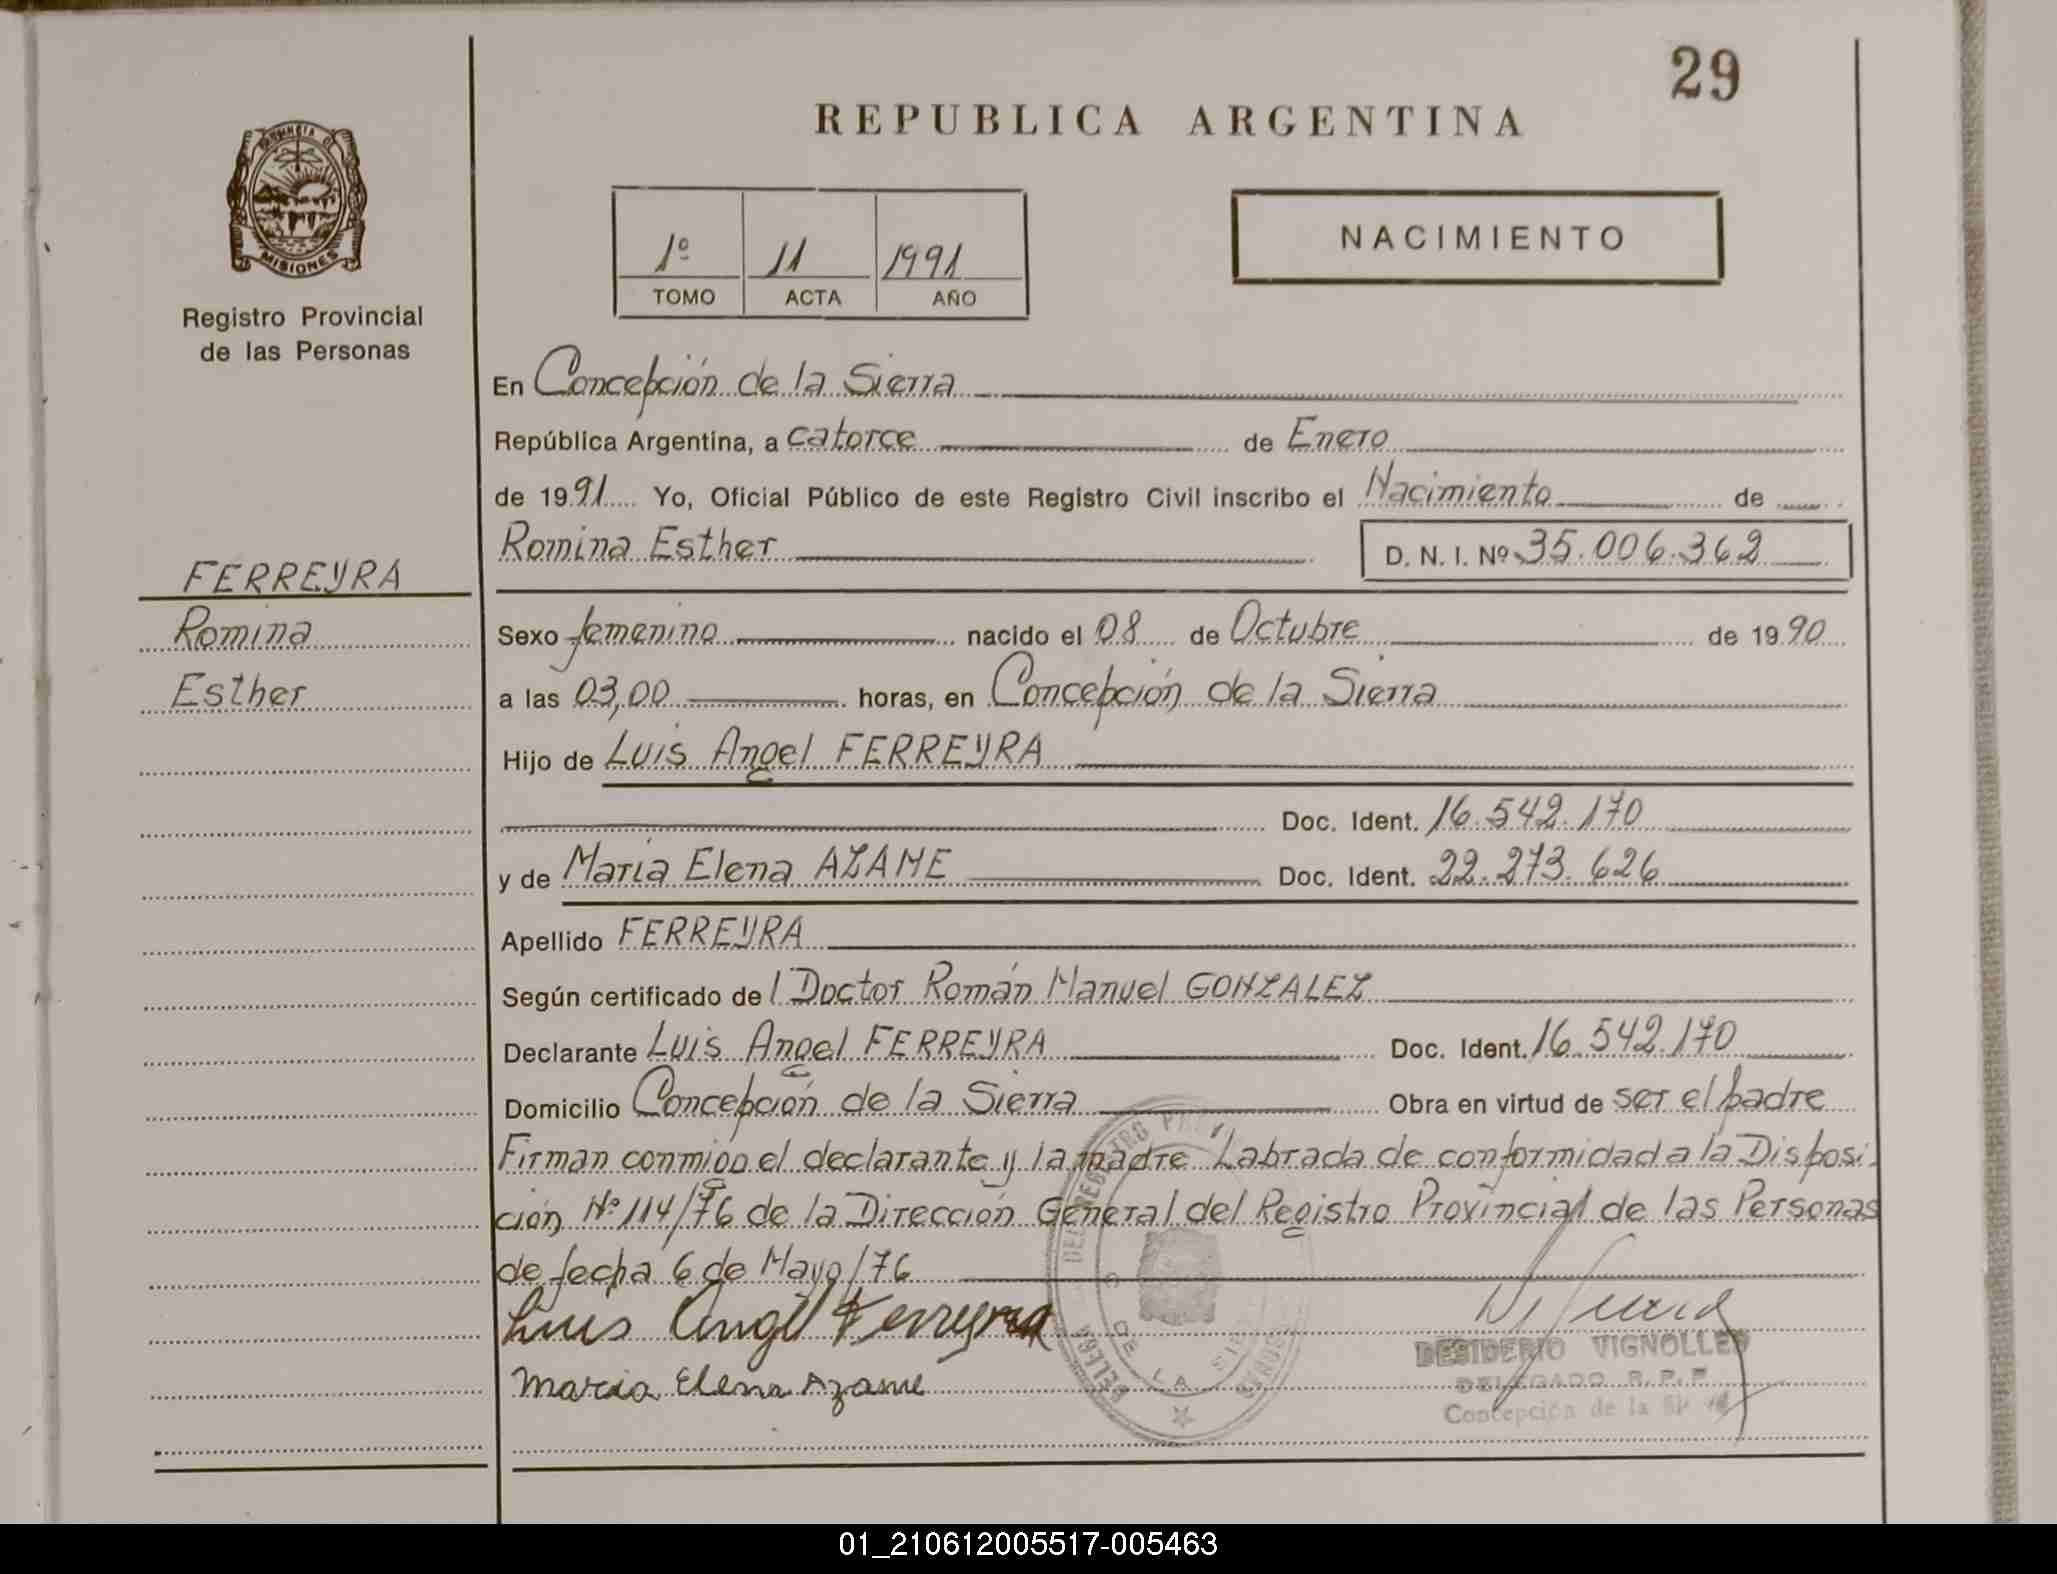 29
REPUBLICA ARGENTINA
PROVINCIA DE
MISIONES
Registro Provincial
de las Personas
1º 11 1991
TOMO ACTA AÑO
NACIMIENTO
En Concepción de la Sierra
República Argentina, a catorce de Enero
de 1991 Yo, Oficial Público de este Registro Civil inscribo el Nacimiento de
Romina Esther D. N. I. Nº 35.006.362
FERREYRA
Romina
Esther
Sexo femenino nacido el 08 de Octubre de 1990
a las 03,00 horas, en Concepción de la Sierra
Hijo de Luis Angel FERREYRA
Doc. Ident. 16.542.170
y de Maria Elena AZAME Doc. Ident. 22.273.626
Apellido FERREYRA
Según certificado del Doctor Román Manuel GONZALEZ
Declarante Luis Angel FERREYRA Doc. Ident. 16.542.170
Domicilio Concepción de la Sierra Obra en virtud de ser el padre
Firman conmigo el declarante y la madre Labrada de conformidad a la Disposi-
ción Nº 114/76 de la Dirección General del Registro Provincial de las Personas
de fecha 6 de Mayo/76
Luis Angel Ferreyra
Maria Elena Azame
DESIDERIO VIGNOLLES
DELEGADO R.P.P.
Concepción de la
01_210612005517-005463